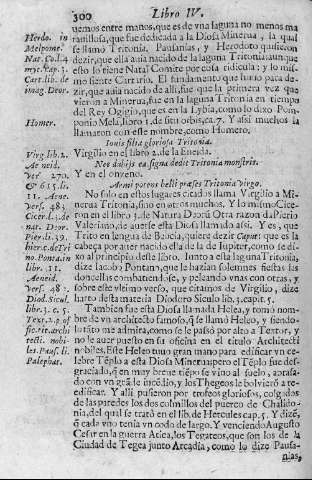 300
Libro IV.
uemos entre manos, que es de vna laguna no menos ma
rauillosa, que fue dedicada a la Diosa Minerua, la qual
se llamó Tritonia. Pausanias, y Herodoto quisieron
dezir, que ella auia nacido de la laguna Tritonia: aunque
esto lo tiene Natal Comite por cosa ridicula: y lo mis-
mo siente Cartario. El fundamento que huuo para de-
zir, que auia nacido de alli, fue que la primera vez que
vieron a Minerua, fue en la laguna Tritonia en tiempo
del Rey Ogigio, que es en la Lybia, como lo dixo Pom-
ponio Mela, libro 1. de situ orbis, c. 7. Y assi muchos la
llamaron con este nombre, como Homero,
Iouis filia gloriosa Tritonia.
Virgilio en el libro 2. de la Eneida.
Nec dubijs ea signa dedit Tritonia monstris.
Y en el onzeno.
Armi potens belli præses Tritonia virgo.
No solo en estos lugares citados llama Virgilio a Mi-
nerua Tritonia, sino en otros muchos. Y lo mismo Cice-
ron en el libro 3. de Natura Deorũ. Otra razon da Pierio
Valeriano, de auerse esta Diosa llamado assi. Y es, que
Trito en lengua de Beocia, quiere dezir Caput: que es la
cabeça por auer nacido ella de la de Iupiter, como se di-
xo al principio deste libro. Iunto a esta laguna Tritonia,
dize Iacobo Pontano, que le hazian solemnes fiestas las
donzellas combatiendose, y peleando vnas con otras, y
sobre este vltimo verso, que citamos de Virgilio, dize
harto desta materia Diodoro Siculo lib. 3. capit. 5.
Tambien fue esta Diosa llamada Helea, y tomó nom-
bre de vn architecto famoso, q̃ se llamó Heleo, y siendo-
lo tãto me admira, como se le passó por alto a Textor, y
no le auer puesto en su oficina en el titulo Architecti
nobiles. Este Heleo tuuo gran mano para edificar vn ce-
lebre Tẽplo a esta Diosa Minerua; pero el Tẽplo fue des-
graciado, q̃ en muy breue tiẽpo se vino al suelo, abrasa-
do con vn grã-de incẽdio, y los Thegeos le boluieró a ree-
dificar. Y alli pusieron por trofeos gloriosos, colgados
de las paredes los dos colmillos del puerco de Chalido-
nia, del qual se trató en el lib. de Hercules cap. 5. Y dizẽ,
q̃ cada vno tenia vn codo de largo. Y venciendo Augusto
Cesar en la guerra Atica, los Tegateos, que son los de la
Ciudad de Tegea junto Arcadia, como lo dize Pausa-
nias,
Herdo. in
Melpome.
Nat. Co. l. 4
myc. cap. 5.
Cart. lib. de
imag. Deor.
Homer.
Virg. lib. 2.
Aeneid.
Ver 270.
& 615. li.
11. Aene.
vers. 483.
Cicer. l. 3. de
nat. Deor.
Pier. li. 39.
hier. c. de Tri
no. Ponta. in
libr. 11.
Aeneid.
vers. 482.
Diod. Sicul.
libr. 3. c. 5.
Text. 2. p. of
fic. tit. archi
tecti. nobi-
les. Paus. li.
Palephat.